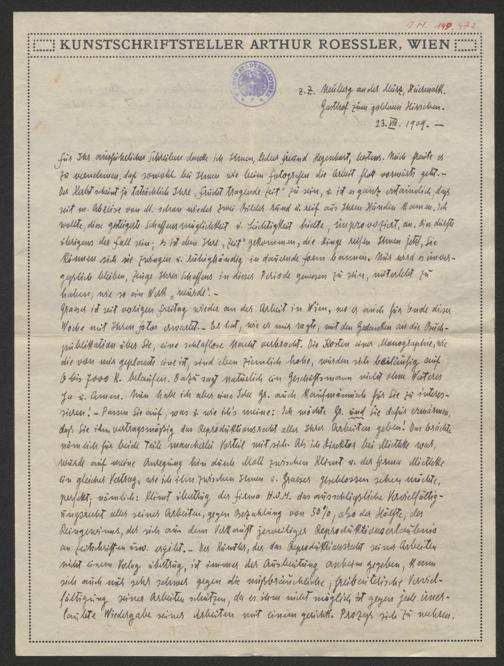 I.N. 149.472
KUNSTSCHRIFTSTELLER ARTHUR ROESSLER, WIEN
z. Z. Neuberg an der Mürz, Steiermark.
Gasthof zum goldenen Hirschen.
23. VII. 1909. —
Für Ihr ausführliches Schreiben danke ich Ihnen, lieber Freund Hegenbart, bestens. Mich freute es
zu vernehmen, daß sowohl bei Ihnen wie beim Fotografen die Arbeit flott vorwärts geht. –
Der Herbst scheint ja tatsächlich Ihre „Frucht tragende Zeit" zu sein, u. ist es ganz erstaunlich, daß
seit m. Abreise von M. schon wieder zwei Bilder rund u. reif aus Ihren Händen kamen. Ich
wollte, diese gesteigerte Schaffensmöglichkeit u. Leichtigkeit hielte, improvisiert, an. Ein dürfte
übrigens der Fall sein; es ist dem Ihre „Zeit" gekommen, die Dinge reifen Ihnen jetzt, Sie
können sich sie zuwegen u. ruhighändig in dauernde Form bannen. Mir wird es unver-
geßlich bleiben, Zeuge Ihres Schaffens in dieser Periode gewesen zu sein, miterlebt zu
haben, wie so ein Werk „wurde". –
Graeser ist seit vorigen Freitag wieder an der Arbeit in Wien, wo er auch für Ende dieser
Woche mit Ihren Fotos erwartet. – Er hat, wie er mir sagte, mit den Gedanken an die Buch-
publikation über Sie, eine schlaflose Nacht verbracht. Die Kosten einer Monographie, wie
die von mir geplante eine ist, sind eben ziemlich hohe, würden sich beiläufig auf
6 bis 7000 K. belaufen. Dazu sagt natürlich ein Geschäftsmann nicht ohne Weiteres
Ja u. Amen. Nun habe ich aber eine Idee Gr. auch kaufmännisch für Sie zu interes-
sieren! – Passen Sie auf, was u. wie ich's meine: Ich möchte Gr. und Sie dafür erwärmen,
daß Sie ihm vertragsmäßig das Reproduktionsrecht aller Ihrer Arbeiten geben! Das brächte
nämlich für beide Teile mancherlei Vorteil mit sich. Als ich Direktor bei Miethke war,
wurde auf meine Anregung hin durch Moll zwischen Klimt u. der Firma Miethke
ein gleicher Vertrag, wie ich ihn zwischen Ihnen u. Graeser geschlossen sehen möchte,
perfekt, nämlich: Klimt überträgt der Firma H.O.M. das ausschließliche Vervielfältig-
ungsrecht aller seiner Arbeiten, gegen Bezahlung von 50%, also der Hälfte, des
Reingewinnes, der sich aus dem Verkauf jeweiliger Reproduktionserlaubnis
an Zeitschriften usw. ergibt. – Der Künstler, der das Reproduktionsrecht seiner Arbeiten
nicht einem Verlag überträgt, ist immer der Ausbeutung anheim gegeben, kann
sich auch nur sehr schwer gegen die mißbräuchliche, freibeuterische Verviel-
fältigung seiner Arbeiten schützen, da es ihm nicht möglich ist gegen jede uner-
laubte Wiedergabe seiner Arbeiten mit einem gerichtl. Prozeß sich zu wehren.